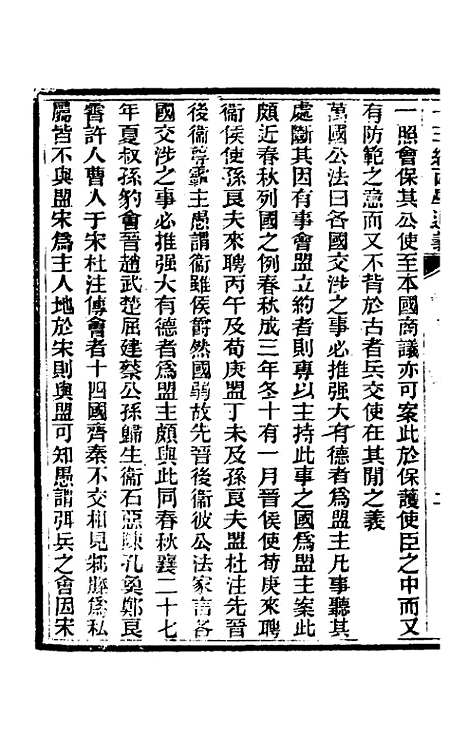 十三經西學通義
二
一照會保其公使至本國商議亦可案此於保護使臣之中而又
有防範之意而又不背於古者兵交使在其閒之義
萬國公法曰各國交涉之事必推强大有德者爲盟主凡事聽其
處斷其因有事會盟立約者則專以主持此事之國爲盟主案此
頗近春秋列國之例春秋成三年冬十有一月晉侯使荀庚來聘
衞侯使孫良夫來聘丙午及荀庚盟丁未及孫良夫盟杜注先晉
後衞尊霸主愚謂衞雖侯爵然國弱故先晉後衞彼公法家言各
國交涉之事必推强大有德者爲盟主頗與此同春秋襄二十七
年夏叔孫豹會晉趙武楚屈建蔡公孫歸生衞石惡陳孔奐鄭良
霄許人曹人于宋杜注傳會者十四國齊秦不交相見邾滕爲私
屬皆不與盟宋爲主人地於宋則與盟可知愚謂弭兵之會因宋